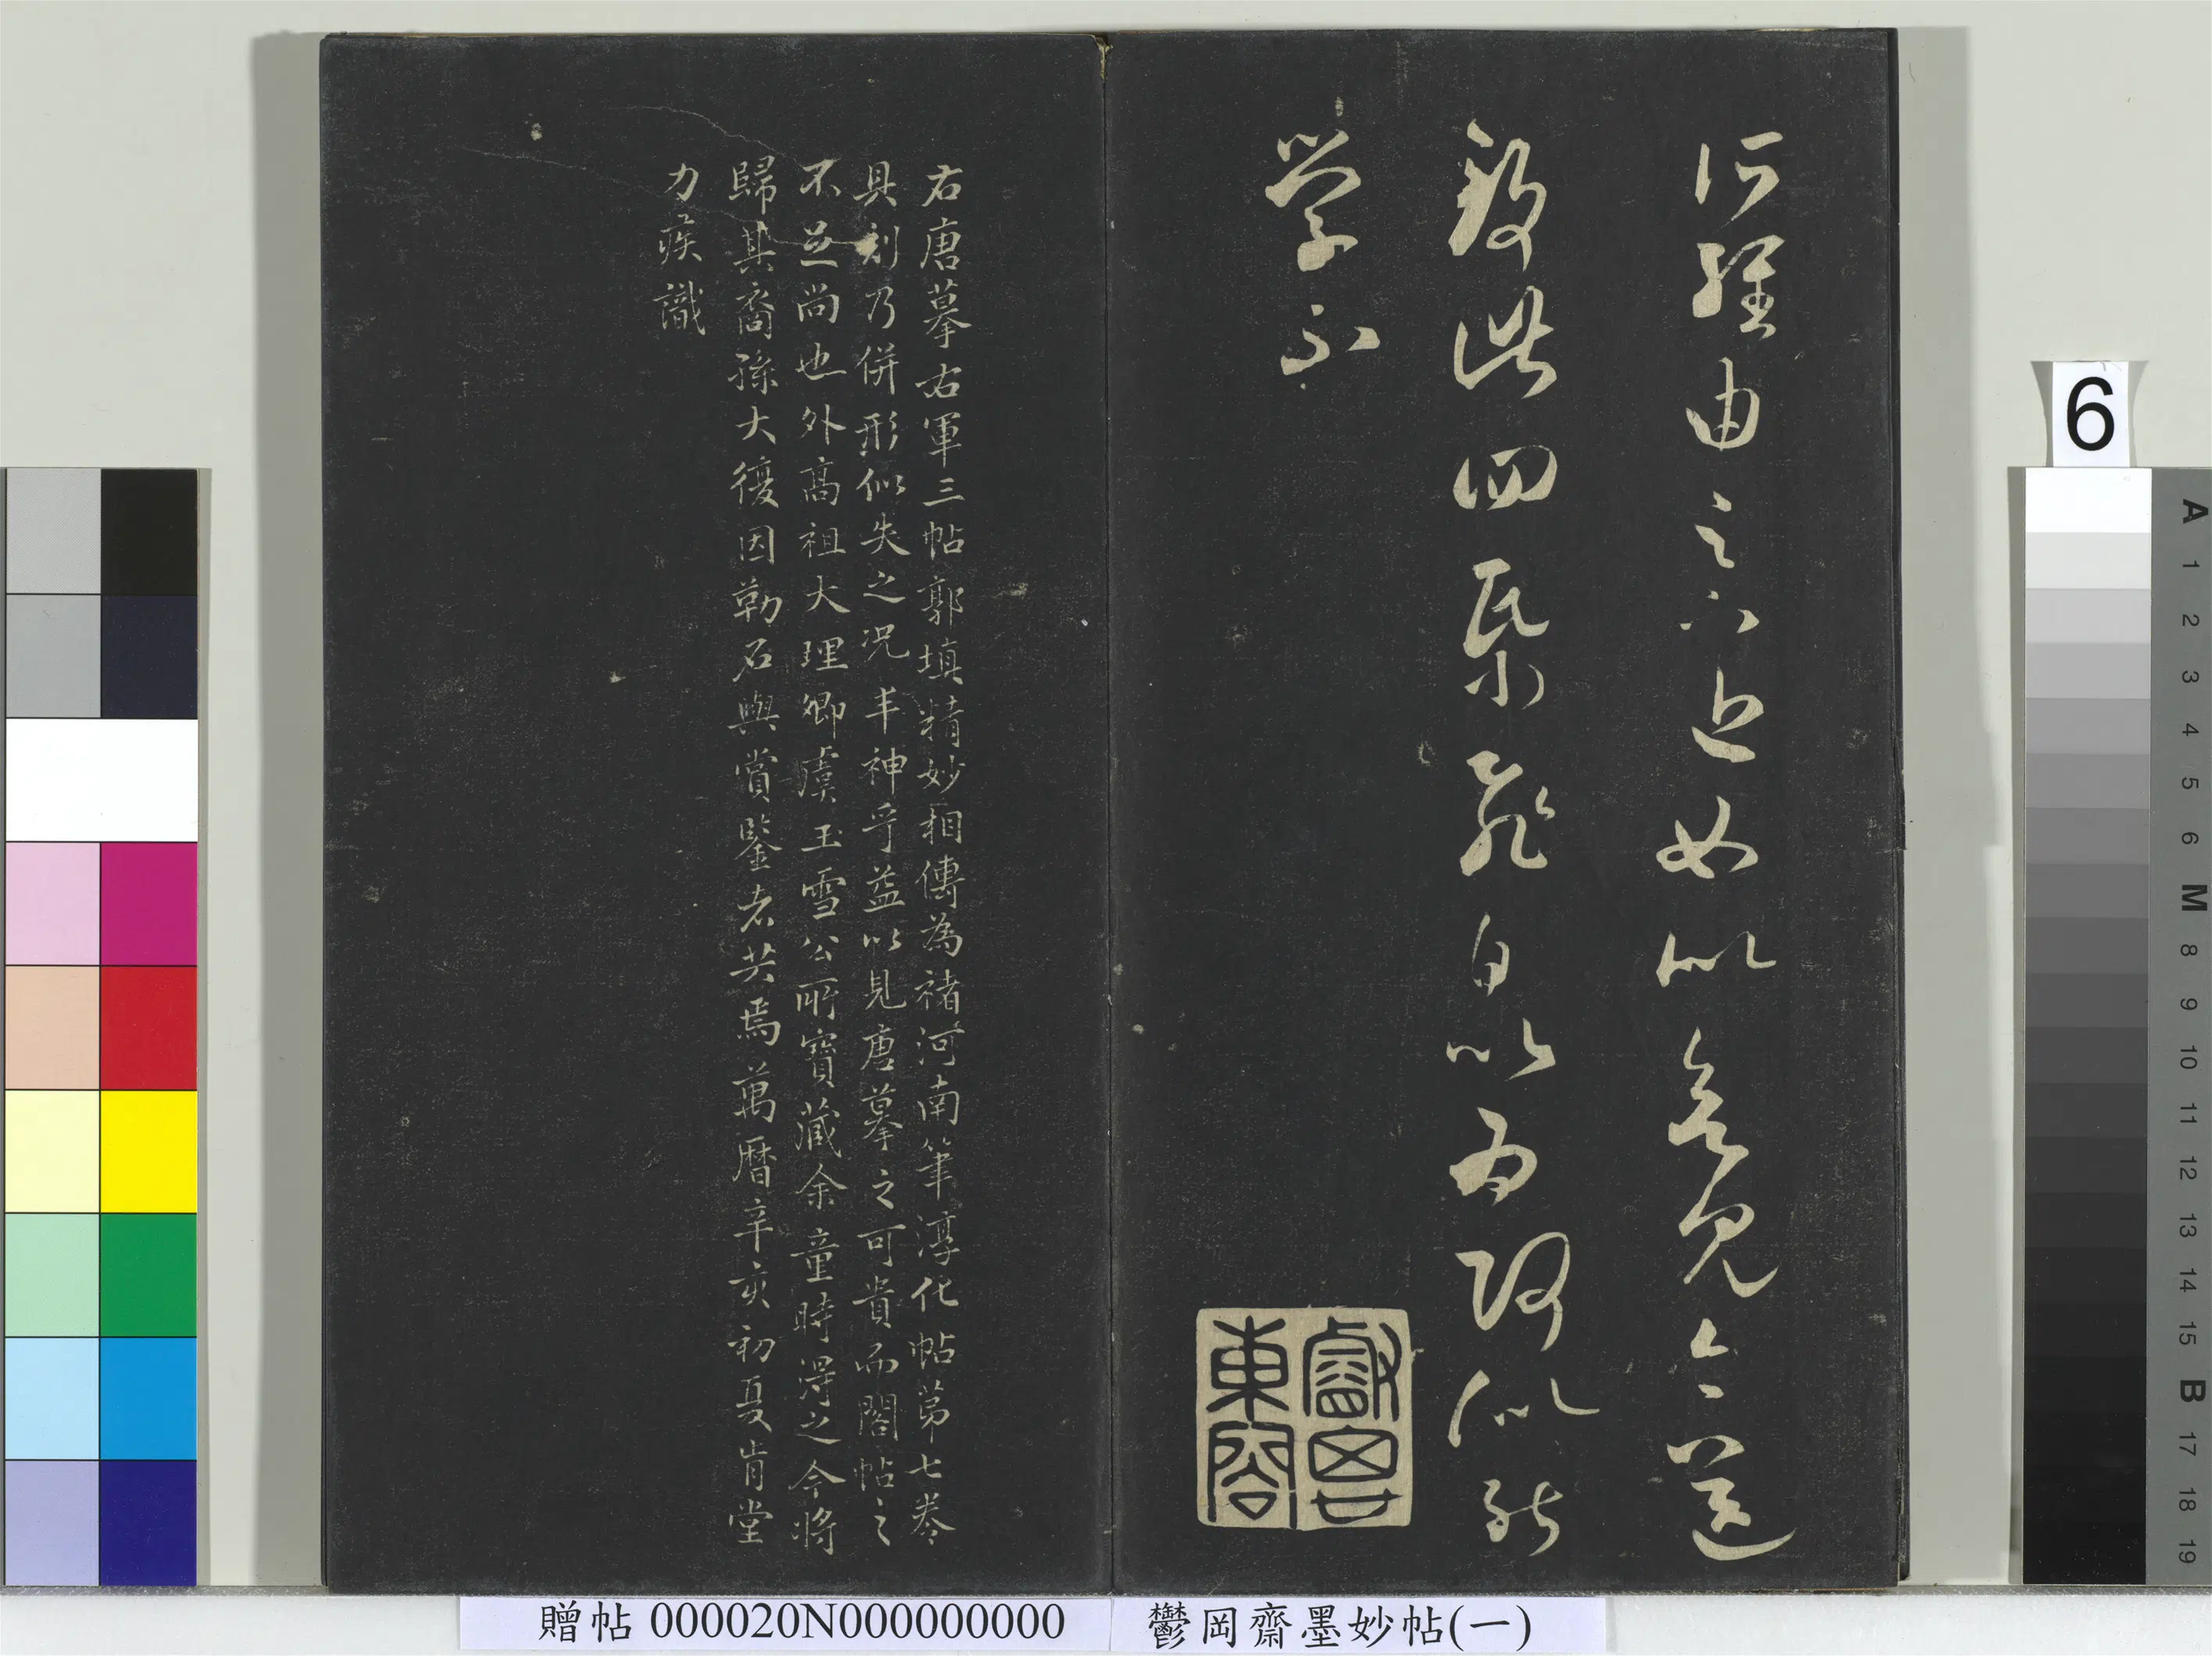 何經由之近如以見今送
致此四紙飛白以為何似能
学不
睿思東閣
右唐摹右軍三帖郭填精妙相傳為褚河南筆淳化帖第七卷
具刻乃併形似失之況丰神乎益以見唐摹之可貴而閣帖之
不足尚也外高祖大理卿虞玉雪公所寶藏余童時得之今將
歸其裔孫大復因勒石與賞鑒者共焉萬曆辛亥初夏肯堂
力疾識
6
A 1 2 3 4 5 6 M 8 9 10 11 12 13 14 15 B 17 18 19
贈帖 000020N000000000
鬱岡齋墨妙帖(一)